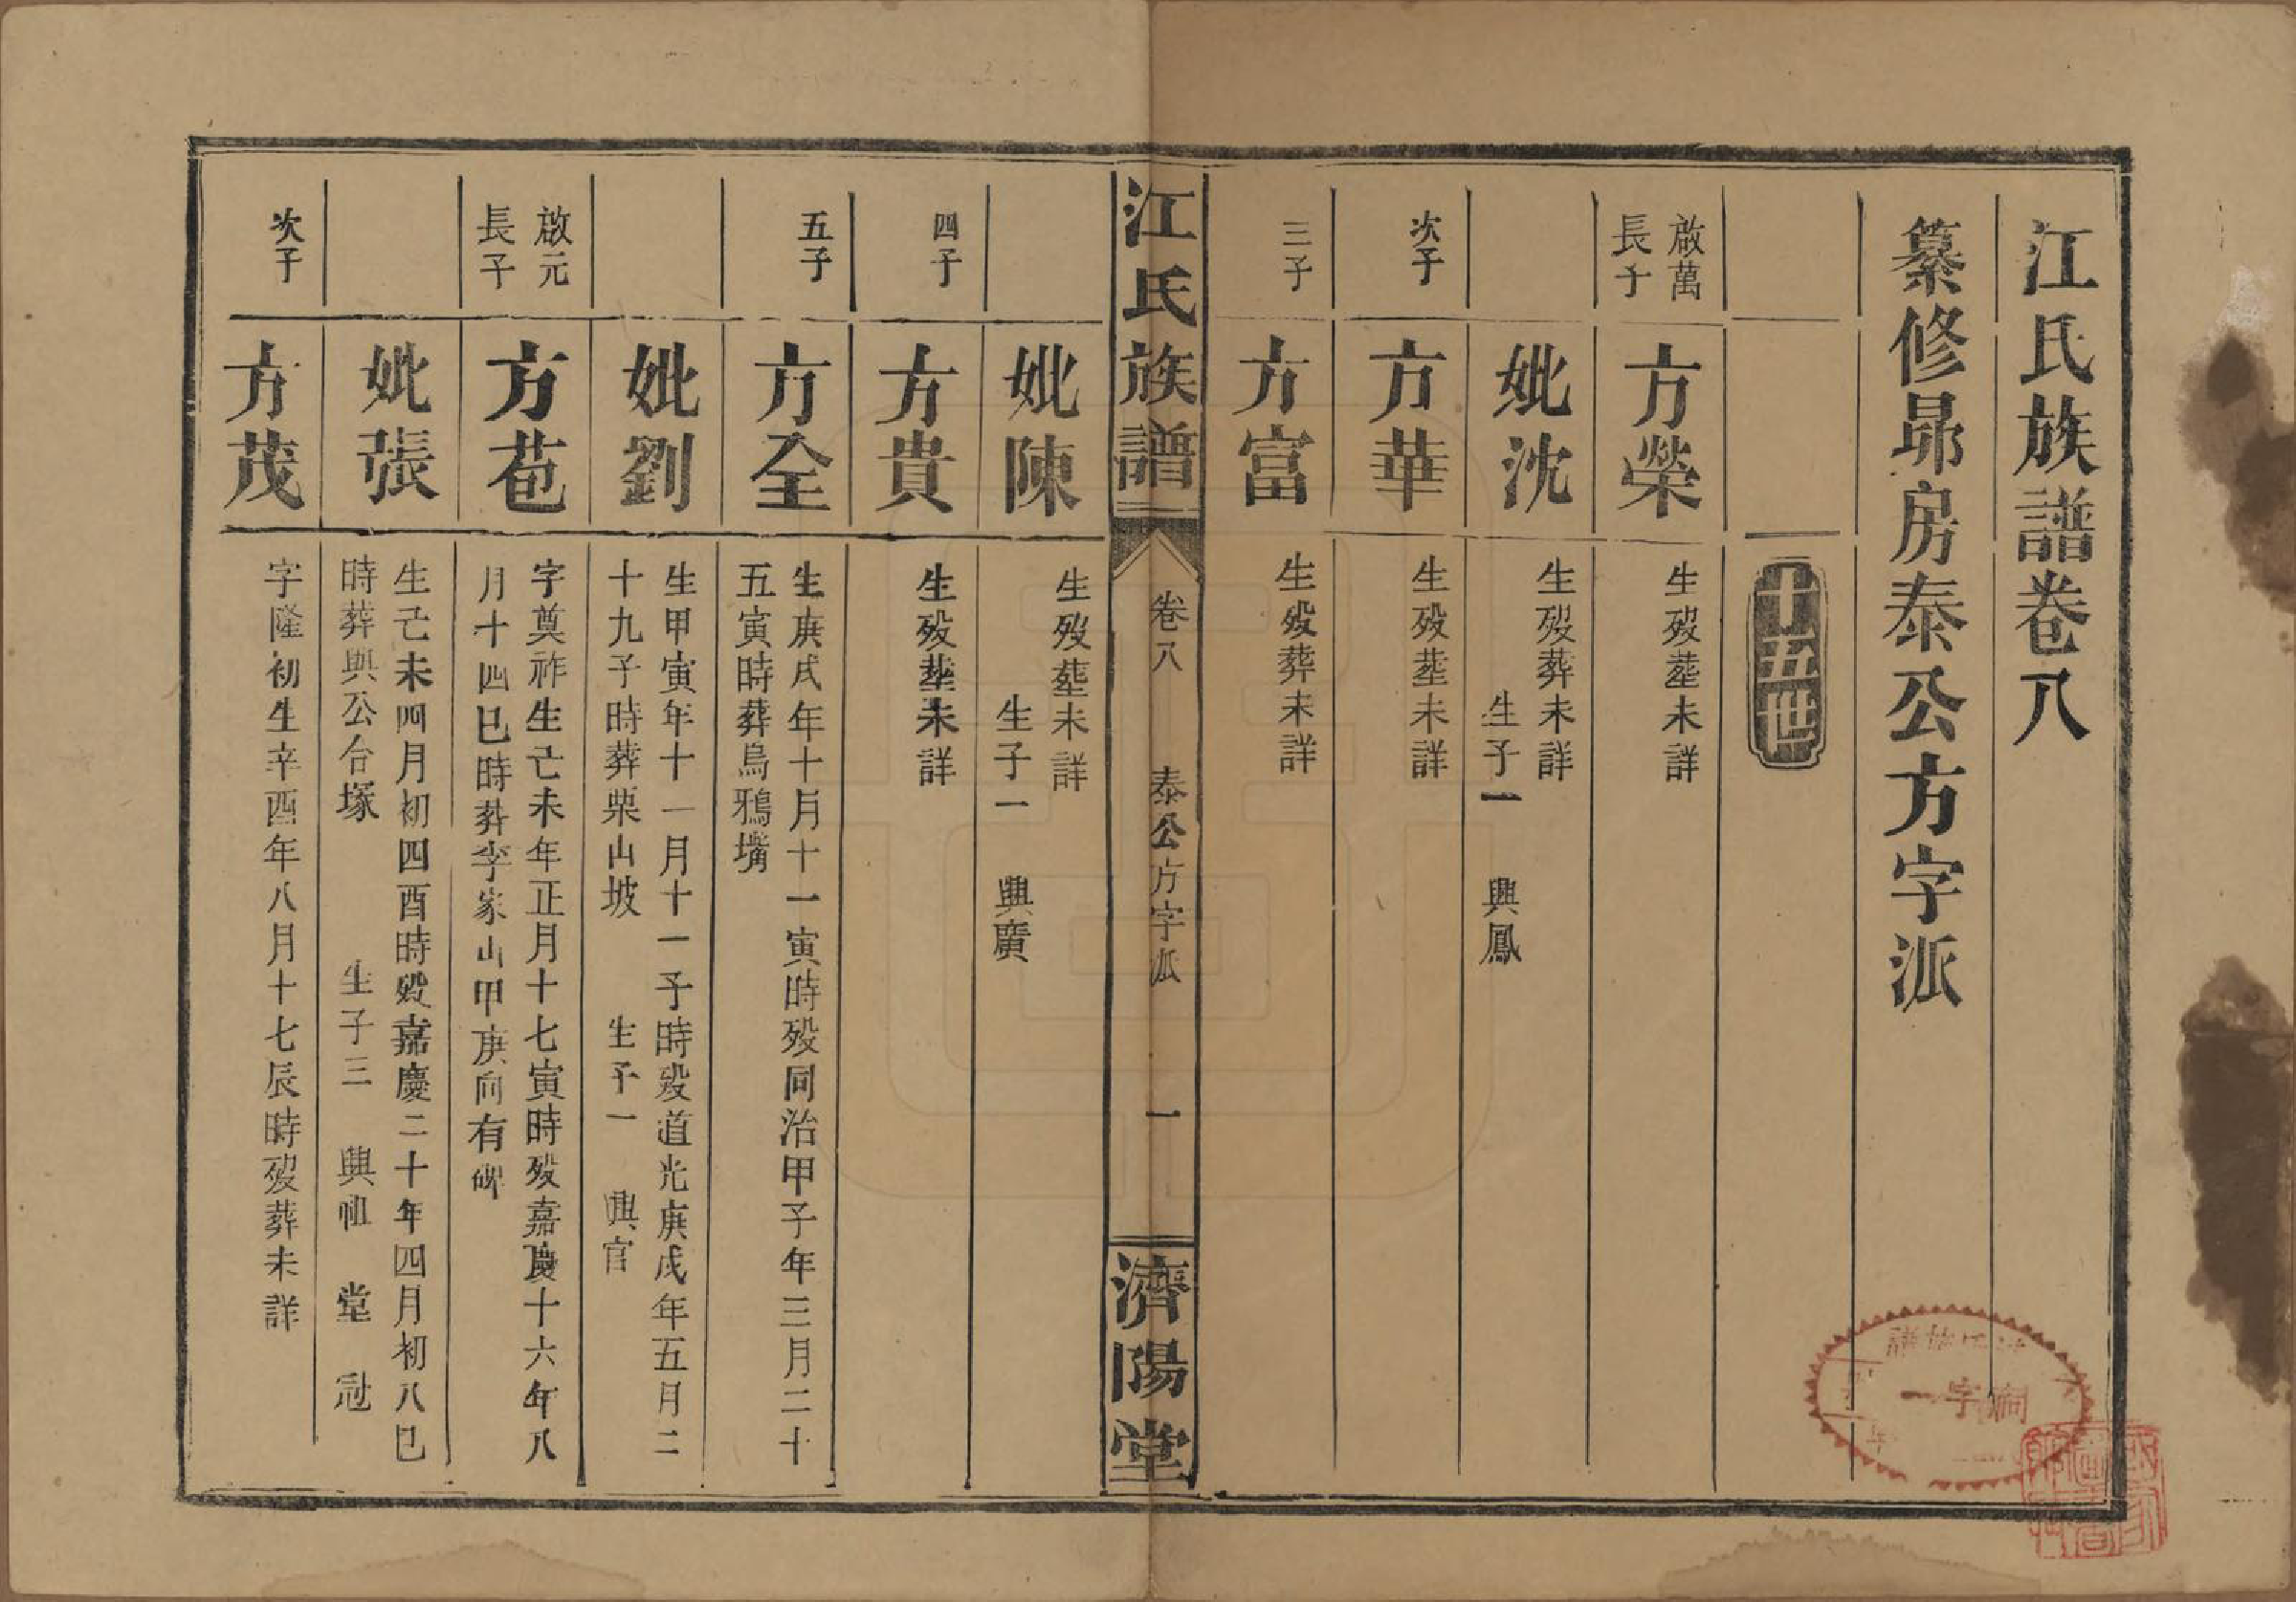 江氏族譜卷八
纂修昴房泰公方字派
十五世
啟萬
長子
方榮
生殁塟未詳
妣沈
生殁葬未詳
生子一 興鳳
次子
方華
生殁塟未詳
三子
方富
生殁葬未詳
江氏族譜 卷八 泰公方字派 一 濟陽堂
妣陳
生殁塟未詳
生子一 興廣
四子
方貴
生殁塟未詳
五子
方全
生庚戌年十月十一寅時殁同治甲子年三月二十
五寅時葬烏鴉墈
妣劉
生甲寅年十一月十一子時殁道光庚戌年五月二
十九子時葬栗山坡 生子一 興官
啟元
長子
方苞
字奠祚生己未年正月十七寅時殁嘉慶十六年八
月十四巳時葬李家山甲庚向有碑
妣張
生己未四月初四酉時殁嘉慶二十年四月初八巳
時葬興公台塚 生子三 興祖 堂 冠
次子
方茂
字隆初生辛酉年八月十七辰時殁葬未詳